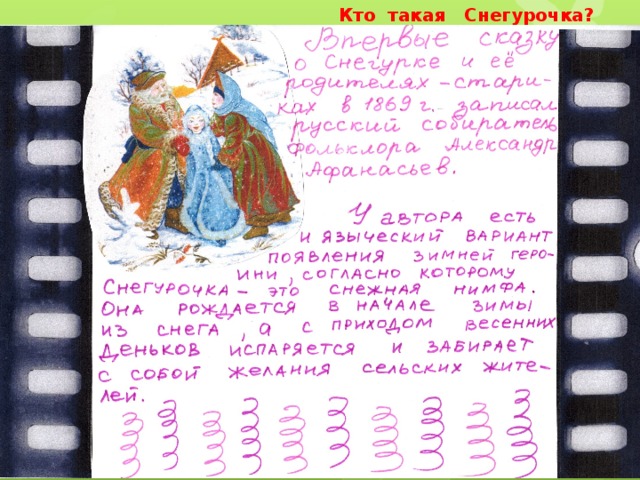 Кто такая Снегурочка?
Впервые сказку
о Снегурке и её
родителях - стари-
ках в 1869 г. записал
русский собиратель
фольклора Александр
Афанасьев.
У автора есть
и языческий вариант
появления зимней геро-
ини, согласно которому
Снегурочка - это снежная нимфа.
Она рождается в начале зимы
из снега, а с приходом весенних
деньков испаряется и забирает
с собой желания сельских жите-
лей.